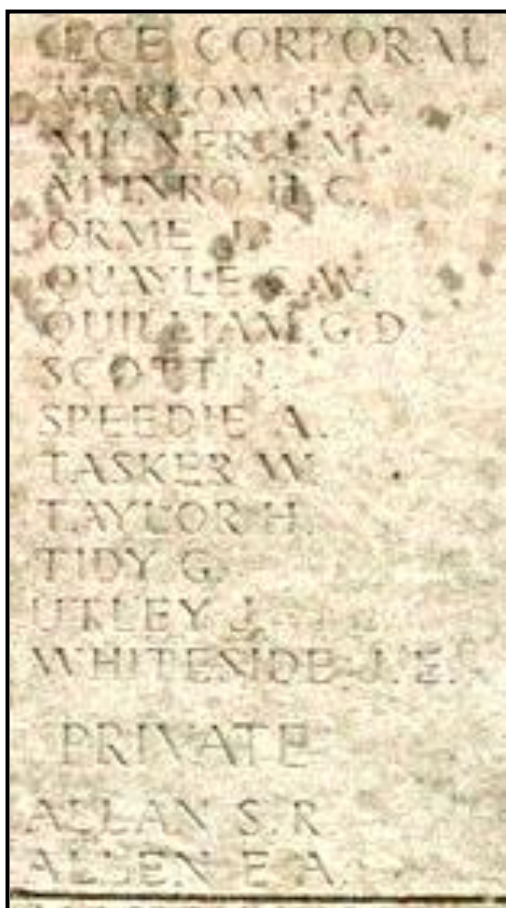 LCE CORPORAL
MARLOW J. A.
MILNER J. M.
MUNRO H. C.
ORME J.
QUAYLE C. W.
QUILLIAM G. D.
SCOTT J.
SPEEDIE A.
TASKER W.
TAYLOR H.
TIDY G.
UTLEY J.
WHITESIDE J. E.
PRIVATE
ALLAN S. R.
ALLEN E. A.